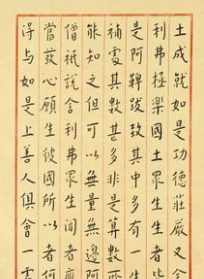 土成就如是功德莊嚴又
利弗極樂國土眾生生
是阿鞞跋致其中多有一
補處其數甚多非是算數所
能知之但可以無量無邊阿
僧祇說舍利弗眾生聞者應
當發心願生彼國所以者何
得与如是上善人俱會一